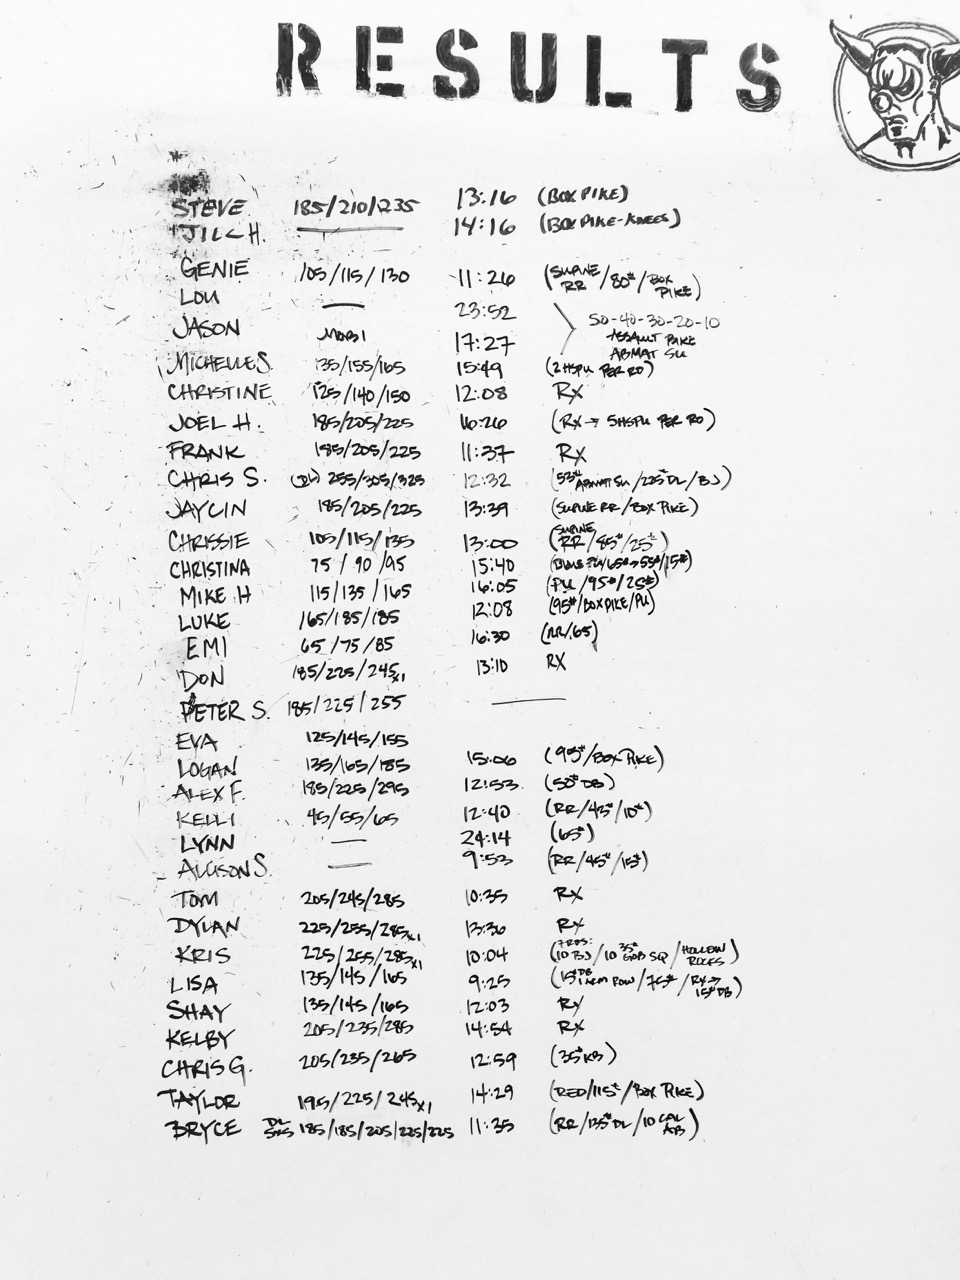 RESULTS
STEVE 185/210/235 13:16 (BOX PIKE)
JILL H. — 14:16 (BOX PIKE-KNEES)
GENIE 105/115/130 11:26 (SUPINE RR/80#/BOX PIKE)
LOU — 23:52
50-40-30-20-10
JASON MOBI 17:27
ASSAULT BIKE
ABMAT SU
MICHELLE S. 135/155/165 15:49 (2 HSPU PER RD)
CHRISTINE 125/140/150 12:08 RX
JOEL H. 185/205/225 16:26 (RX → 5HSPU PER RD)
FRANK 185/205/225 11:37 RX
CHRIS S. (DL) 255/305/325 12:32 (53# ABMAT SU/225# DL/BJ)
JAYCIN 185/205/225 13:39 (SUPINE RR/BOX PIKE)
CHRISSIE 105/115/135 13:00 (SUPINE RR/85#/25#)
CHRISTINA 75/90/95 15:40 (BLUE PU/65#→55#/15#)
MIKE H 115/135/165 16:05 (PU/95#/25#)
LUKE 165/185/185 12:08 (95#/BOX PIKE/PU)
EMI 65/75/85 16:30 (RR/65)
DON 185/225/245x1 13:10 RX
PETER S. 185/225/255 —
EVA 125/145/155
LOGAN 135/165/185 15:06 (95#/BOX PIKE)
ALEX F. 185/225/295 12:53 (50# DB)
KELLI 45/55/65 12:40 (RR/45#/10#)
LYNN — 24:14 (65#)
ALLISON S. — 9:53 (RR/45#/15#)
TOM 205/245/285 10:35 RX
DYLAN 225/255/285x1 13:36 RX
KRIS 225/255/285x1 10:04 (7 RDS: 10 BJ/10 35# GOB SQ/HOLLOW ROCKS)
LISA 135/145/165 9:25 (15# DB 1 ARM ROW/75#/RX→15# DB)
SHAY 135/145/165 12:03 RX
KELBY 205/235/285 14:54 RX
CHRIS G. 205/235/265 12:59 (35# KB)
TAYLOR 195/225/245x1 14:29 (RED/115#/BOX PIKE)
BRYCE DL 5x5 185/185/205/225/225 11:35 (RR/135# DL/10 CAL AB)